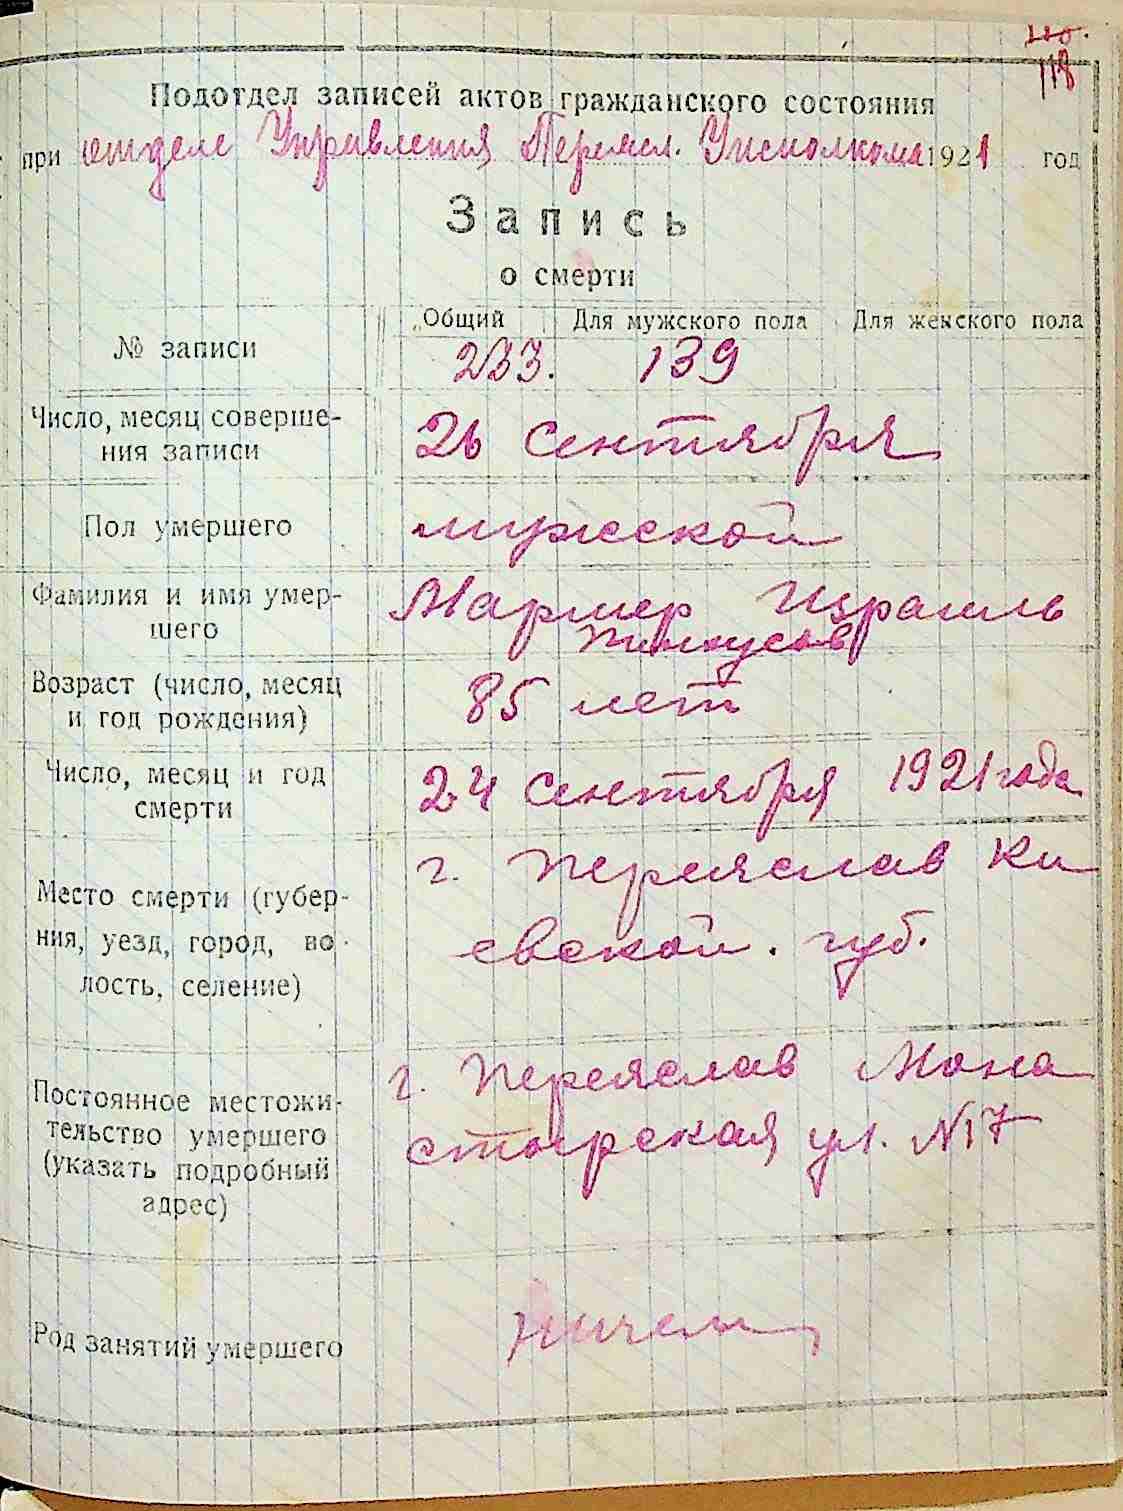 118
Подотдел записей актов гражданского состояния
при отделе Управления Переясл. Уисполкома 1921 год
Запись
о смерти
Общий Для мужского пола Для женского пола
№ записи 233. 139
Число, месяц соверше- 26 сентября
ния записи
Пол умершего мужской
Фамилия и имя умер- Мармер Израиль
шего Пинкусов
Возраст (число, месяц 85 лет
и год рождения)
Число, месяц и год 24 сентября 1921 года
смерти
г. Переяслав Ки
Место смерти (губер-
ния, уезд, город, во- евской. губ.
лость, селение)
г. Переяслав Мона
Постоянное местожи-
тельство умершего стырская ул. №17
(указать подробный
адрес)
Род занятий умершего ничем